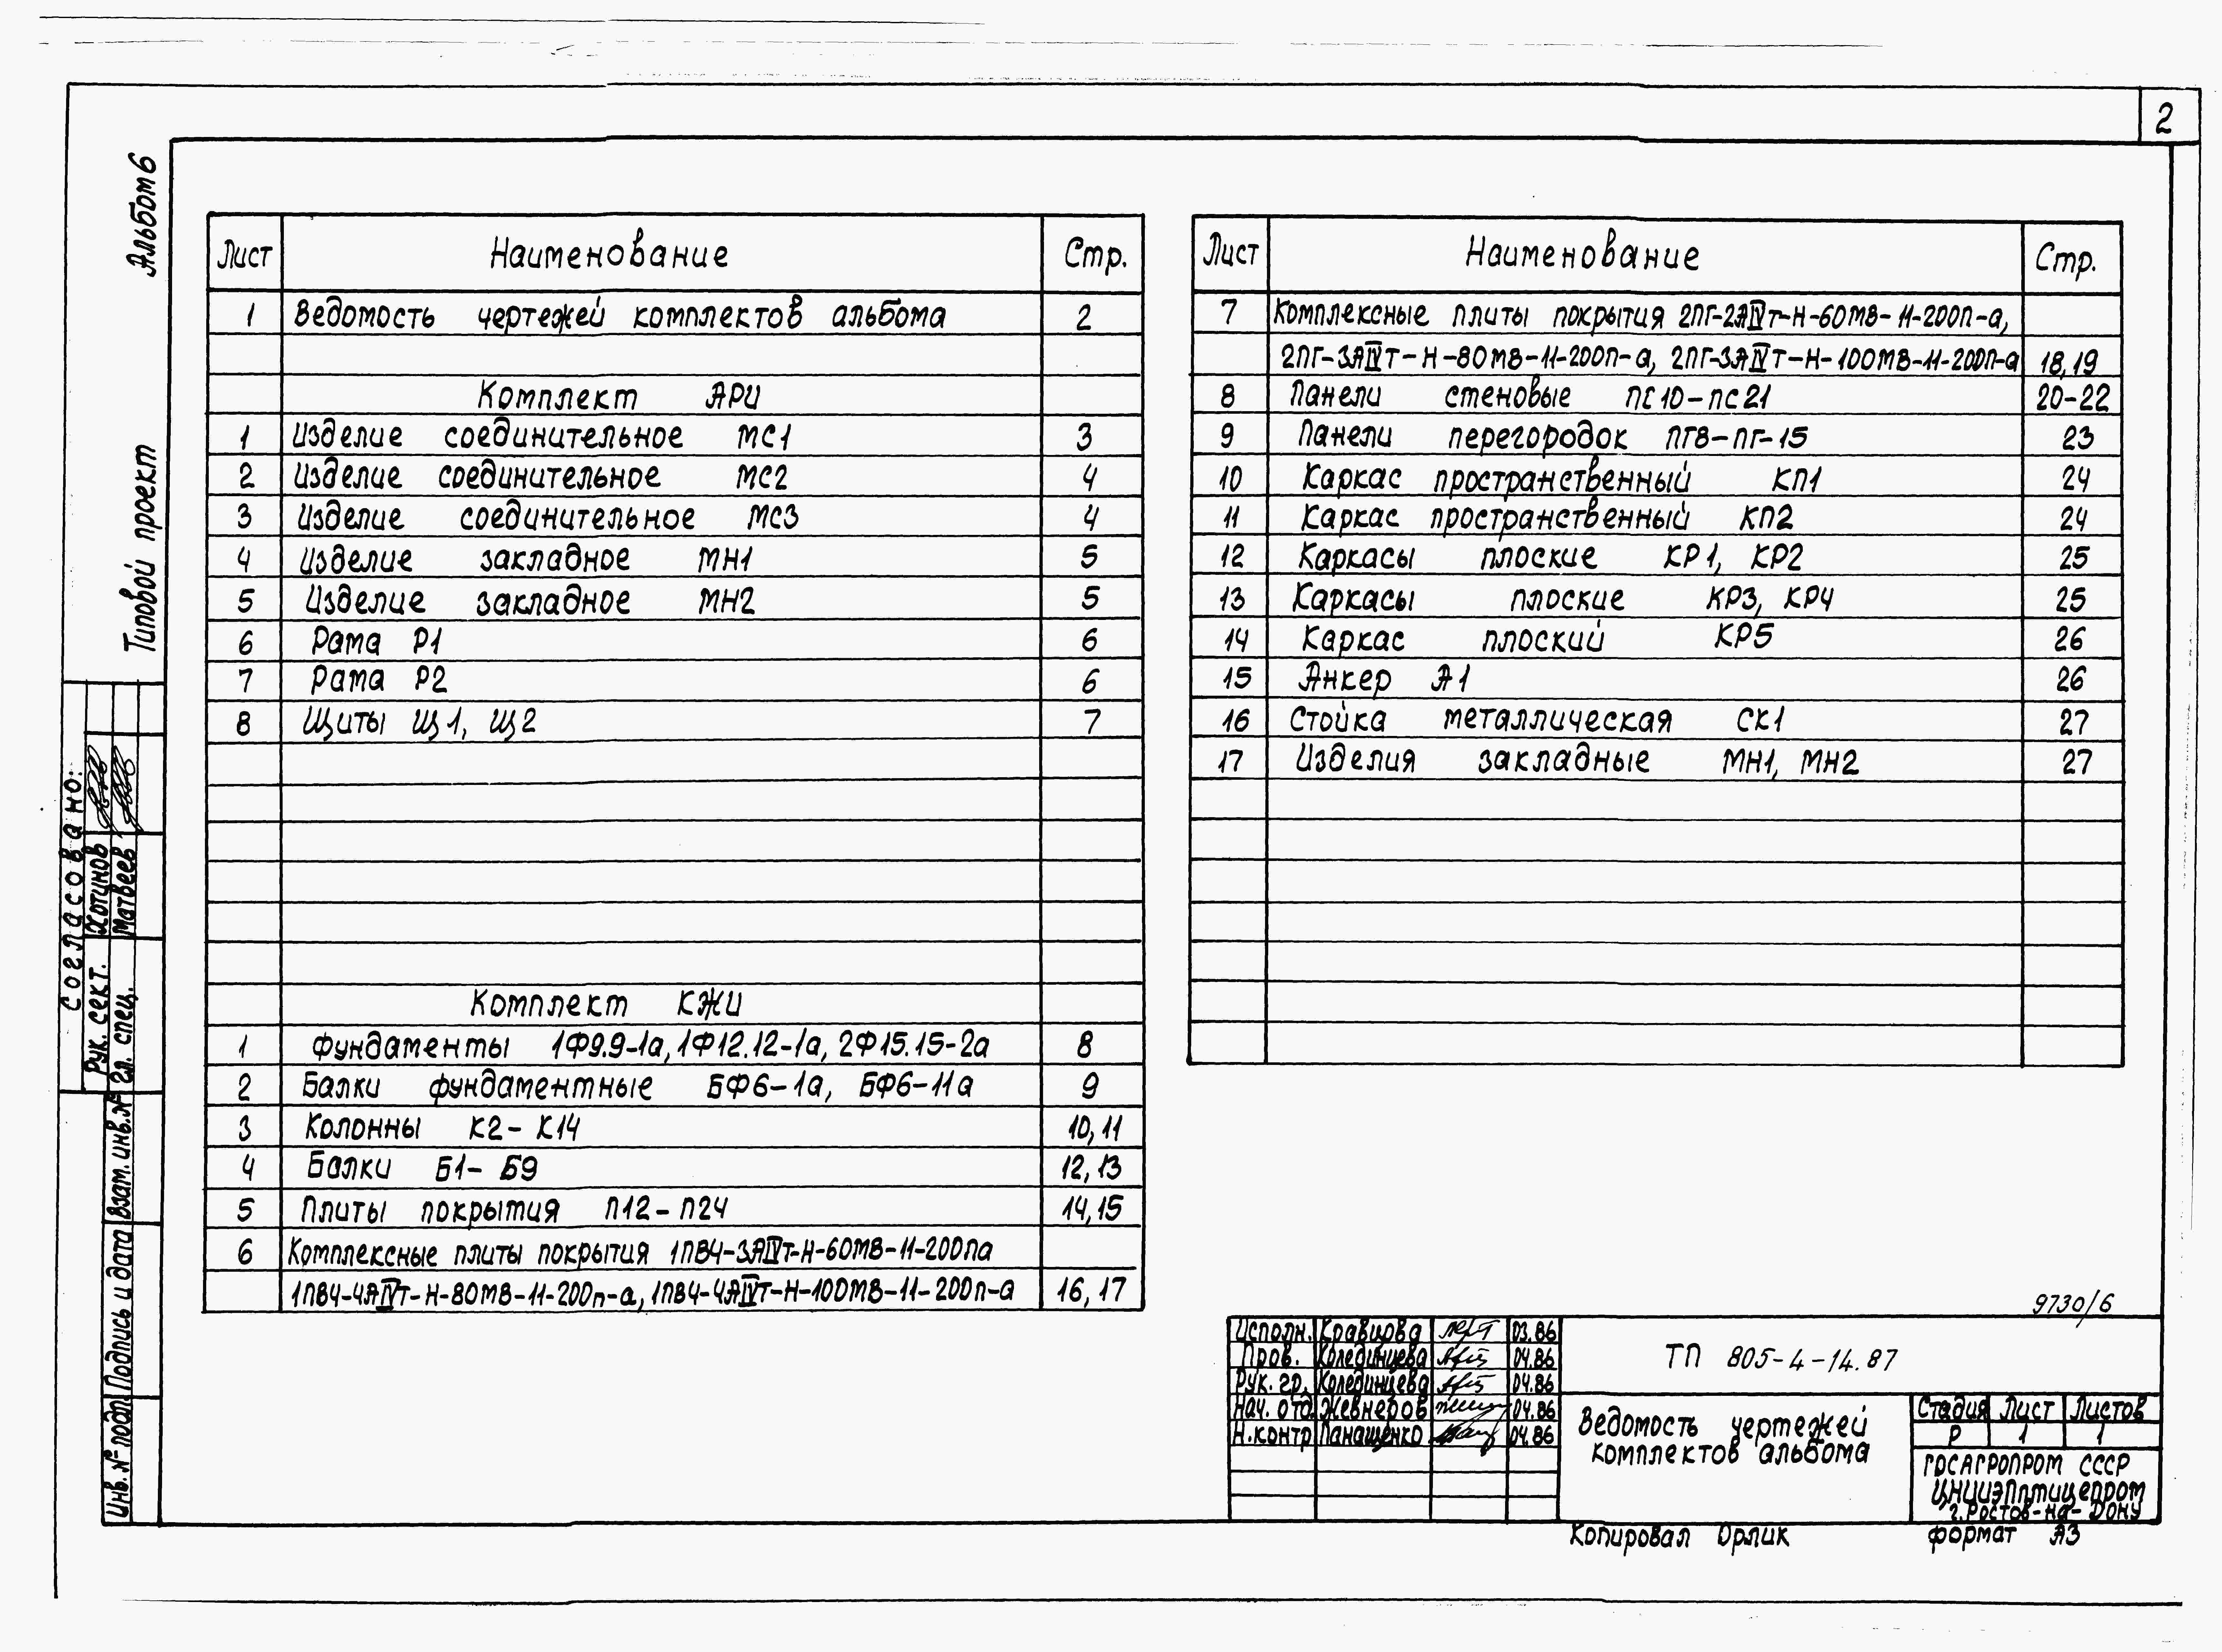 2
Альбом 6
Типовой проект
Лист Наименование Стр.
1 Ведомость чертежей комплектов альбома 2
Комплект АРИ
1 Изделие соединительное МС1 3
2 Изделие соединительное МС2 4
3 Изделие соединительное МС3 4
4 Изделие закладное МН1 5
5 Изделие закладное МН2 5
6 Рама Р1 6
7 Рама Р2 6
8 Щиты Щ1, Щ2 7
Комплект КЖИ
1 Фундаменты 1Ф9.9-1а, 1Ф12.12-1а, 2Ф15.15-2а 8
2 Балки фундаментные БФ6-1а, БФ6-11а 9
3 Колонны К2-К14 10,11
4 Балки Б1-Б9 12,13
5 Плиты покрытия П12-П24 14,15
6 Комплексные плиты покрытия 1ПВ4-3АIVт-Н-60МВ-11-200па
1ПВ4-4АIVт-Н-80МВ-11-200п-а, 1ПВ4-4АIVт-Н-100МВ-11-200п-а 16,17
Лист Наименование Стр.
7 Комплексные плиты покрытия 2ПГ-2АIVт-Н-60МВ-11-200п-а,
2ПГ-3АIVт-Н-80МВ-11-200п-а, 2ПГ-3АIVт-Н-100МВ-11-200п-а 18,19
8 Панели стеновые ПС10-ПС21 20-22
9 Панели перегородок ПГ8-ПГ-15 23
10 Каркас пространственный КП1 24
11 Каркас пространственный КП2 24
12 Каркасы плоские КР1, КР2 25
13 Каркасы плоские КР3, КР4 25
14 Каркас плоский КР5 26
15 Анкер А1 26
16 Стойка металлическая СК1 27
17 Изделия закладные МН1, МН2 27
Согласовано:
Рук. сект. Хотинов
Гл. спец. Матвеев
Взам. инв. №
Подпись и дата
Инв. № подл.
9730/6
Исполн. Кравцова 03.86
Пров. Колединцева 04.86
Рук. гр. Колединцева 04.86
Нач. отд. Жевнеров 04.86
Н.контр Панащенко 04.86
ТП 805-4-14.87
Ведомость чертежей
комплектов альбома
Стадия Лист Листов
Р 1 1
ГОСАГРОПРОМ СССР
ЦНИИЭПптицепром
г. Ростов-на-Дону
Копировал Орлик
формат А3